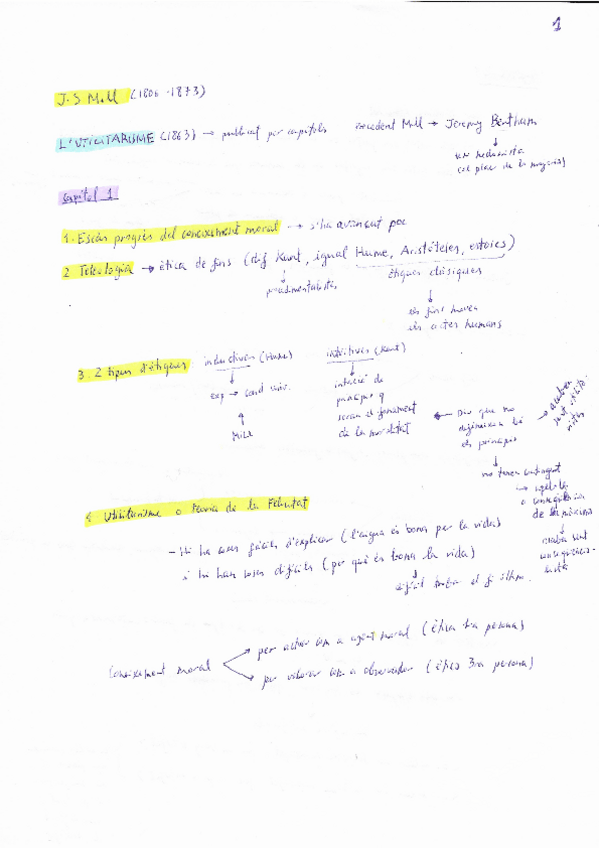 1
J.S Mill (1806-1873)
L'UTILITARISME (1863) → publicat per capítols precedent Mill → Jeremy Bentham
era hedonista
(el plaer de la majoria)
Capítol 1
1. Escàs progrés del coneixement moral → s'ha avançut poc
2 Teleologia → ètica de fins (dif Kant, igual Hume, Aristòteles, estoics)
procedimentalistes
ètiques clàssiques
els fins mouen
els actes humans
3. 2 tipus d'ètiques: inductives (Hume) intuitives (Kant)
exp → cond univ.
Mill
intuició de
principis q
seran el fonament
de la moralitat
Diu que no
defineixen bé
els principis
acaben
sent utilita
ristes
no tenen contingut
→ apel·la
a conseqüència
de la màxima
acaba sent
conseqüencia-
lista
4 Utilitarisme o Teoria de la Felicitat
- Hi ha coses fàcils d'explicar (l'aigua és bona per la vida)
i hi han coses difícils (per què és bona la vida)
difícil trobar el fi últim.
Coneixement moral
per actuar com a agent moral (ètica 1ra persona)
per valorar com a observador (ètica 3ra persona)